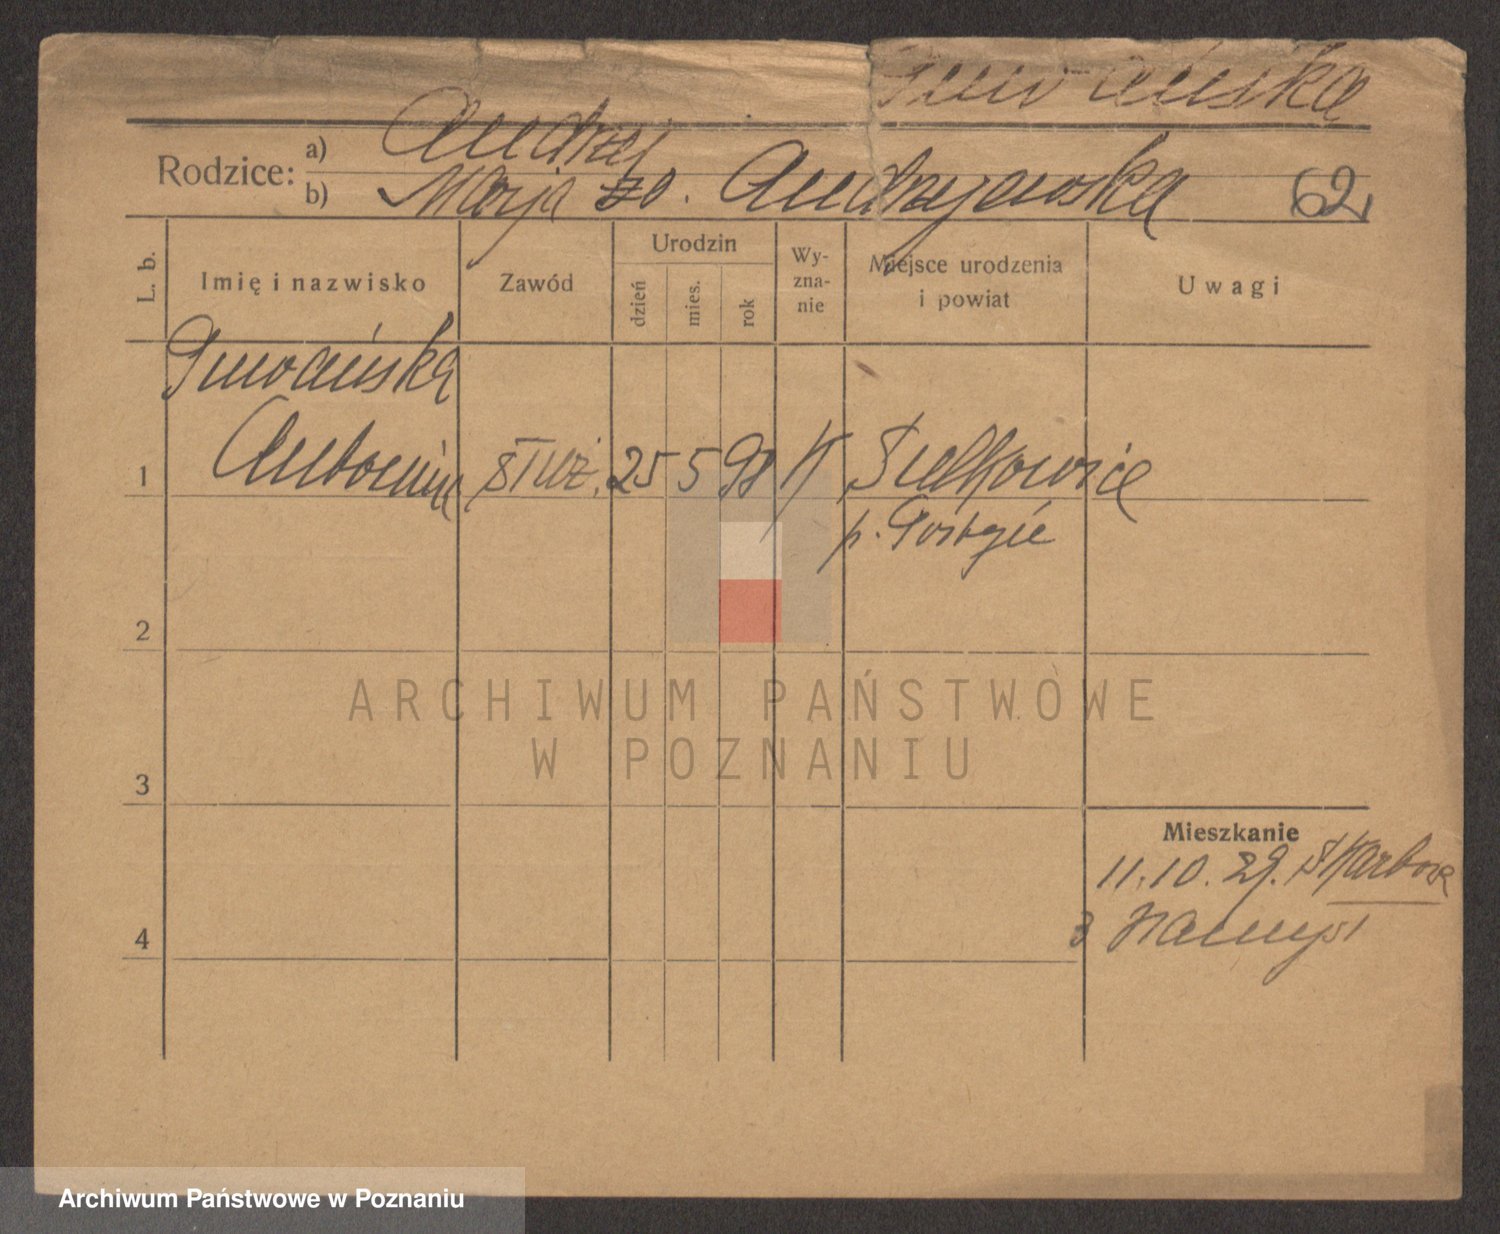 Rodzice: a) Andrzej
b) Marja zd. Andrzejewska 62
L. b. Imię i nazwisko Zawód Urodzin dzień mies. rok Wy-zna-nie Miejsce urodzenia i powiat Uwagi
Antonina
1 służ. 25 5 98 K
p. Gostyń
2
3
4
Mieszkanie
11.10.29. Skarbowa
3 Namysł
ARCHIWUM PAŃSTWOWE
W POZNANIU
Archiwum Państwowe w Poznaniu